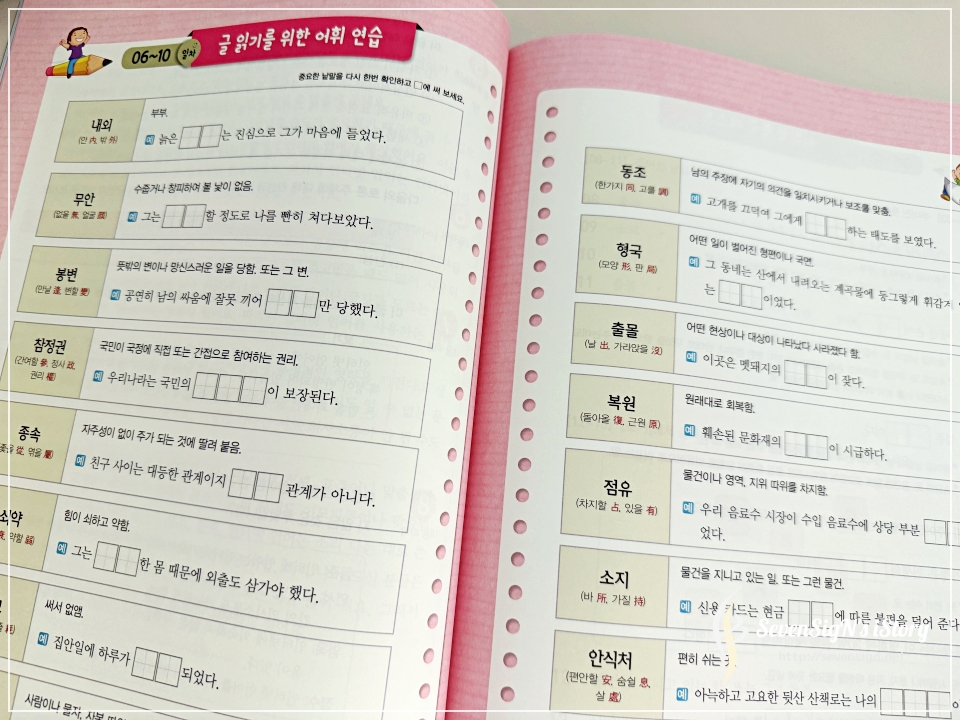 06~10 일차
글 읽기를 위한 어휘 연습
중요한 낱말을 다시 한번 확인하고 □에 써 보세요.
내외
(안 內, 밖 外)
부부.
예 늙은 □□는 진심으로 그가 마음에 들었다.
무안
(없을 無, 얼굴 顔)
수줍거나 창피하여 볼 낯이 없음.
예 그는 □□할 정도로 나를 빤히 쳐다보았다.
봉변
(만날 逢, 변할 變)
뜻밖의 변이나 망신스러운 일을 당함. 또는 그 변.
예 공연히 남의 싸움에 잘못 끼어 □□만 당했다.
참정권
(간여할 參, 정사 政,
권리 權)
국민이 국정에 직접 또는 간접으로 참여하는 권리.
예 우리나라는 국민의 □□□이 보장된다.
종속
從, 엮을 屬)
자주성이 없이 주가 되는 것에 딸려 붙음.
예 친구 사이는 대등한 관계이지 □□ 관계가 아니다.
쇠약
약할 弱)
힘이 쇠하고 약함.
예 그는 □□한 몸 때문에 외출도 삼가야 했다.
耗)
써서 없앰.
예 집안일에 하루가 □□되었다.
사람이나 물자, 자본
동조
(한가지 同, 고를 調)
남의 주장에 자기의 의견을 일치시키거나 보조를 맞춤.
예 고개를 끄덕여 그에게 □□하는 태도를 보였다.
형국
(모양 形, 판 局)
어떤 일이 벌어진 형편이나 국면.
예 그 동네는 산에서 내려오는 계곡물에 둥그렇게 휘감겨
는 □□이었다.
출몰
(날 出, 가라앉을 沒)
어떤 현상이나 대상이 나타났다 사라졌다 함.
예 이곳은 멧돼지의 □□이 잦다.
복원
(돌아올 復, 근원 原)
원래대로 회복함.
예 훼손된 문화재의 □□이 시급하다.
점유
(차지할 占, 있을 有)
물건이나 영역, 지위 따위를 차지함.
예 우리 음료수 시장이 수입 음료수에 상당 부분 □
었다.
소지
(바 所, 가질 持)
물건을 지니고 있는 일. 또는 그런 물건.
예 신용 카드는 현금 □□에 따른 불편을 덜어 준다
안식처
(편안할 安, 숨쉴 息,
살 處)
편히 쉬는 곳.
예 아늑하고 고요한 뒷산 산책로는 나의 □□□
SevenSigN'sTStory